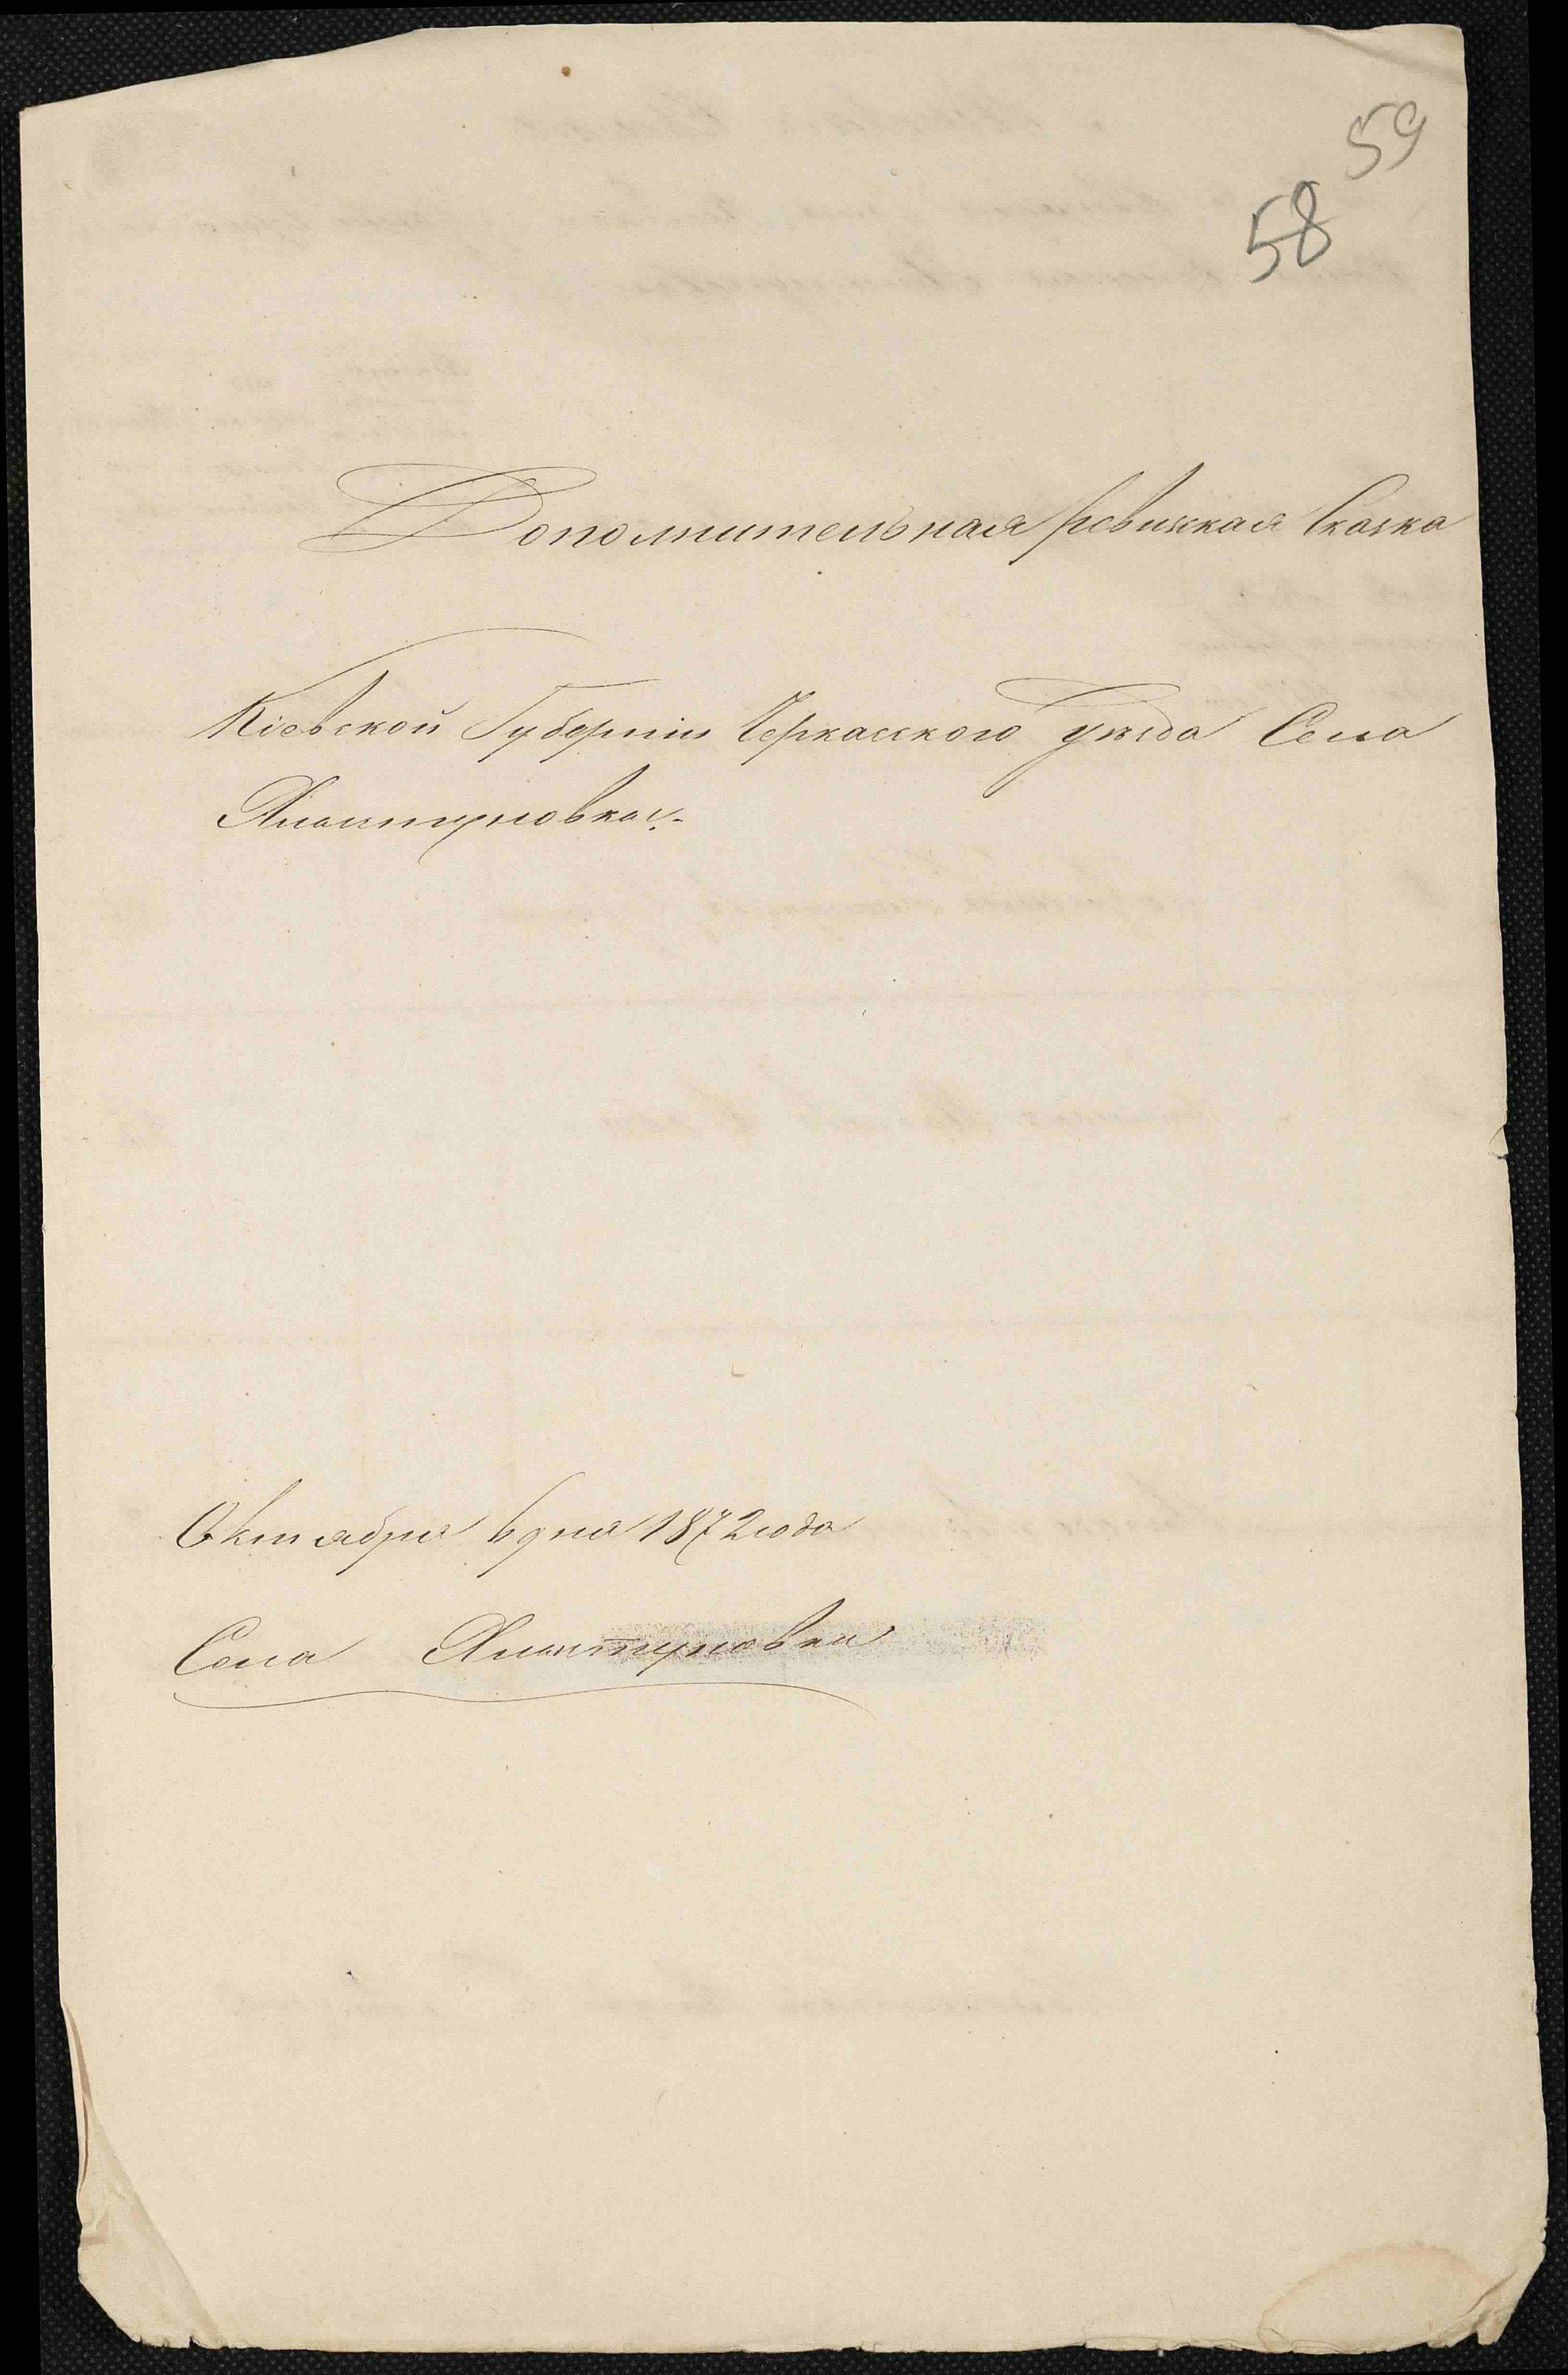 59
58
Дополнительная ревизкая Сказка
Кіевской Губерніи Черкасского Уѣзда Села
Хлыстуновка.
Октября 6 дня 1872 года
Села Хлыстуновки